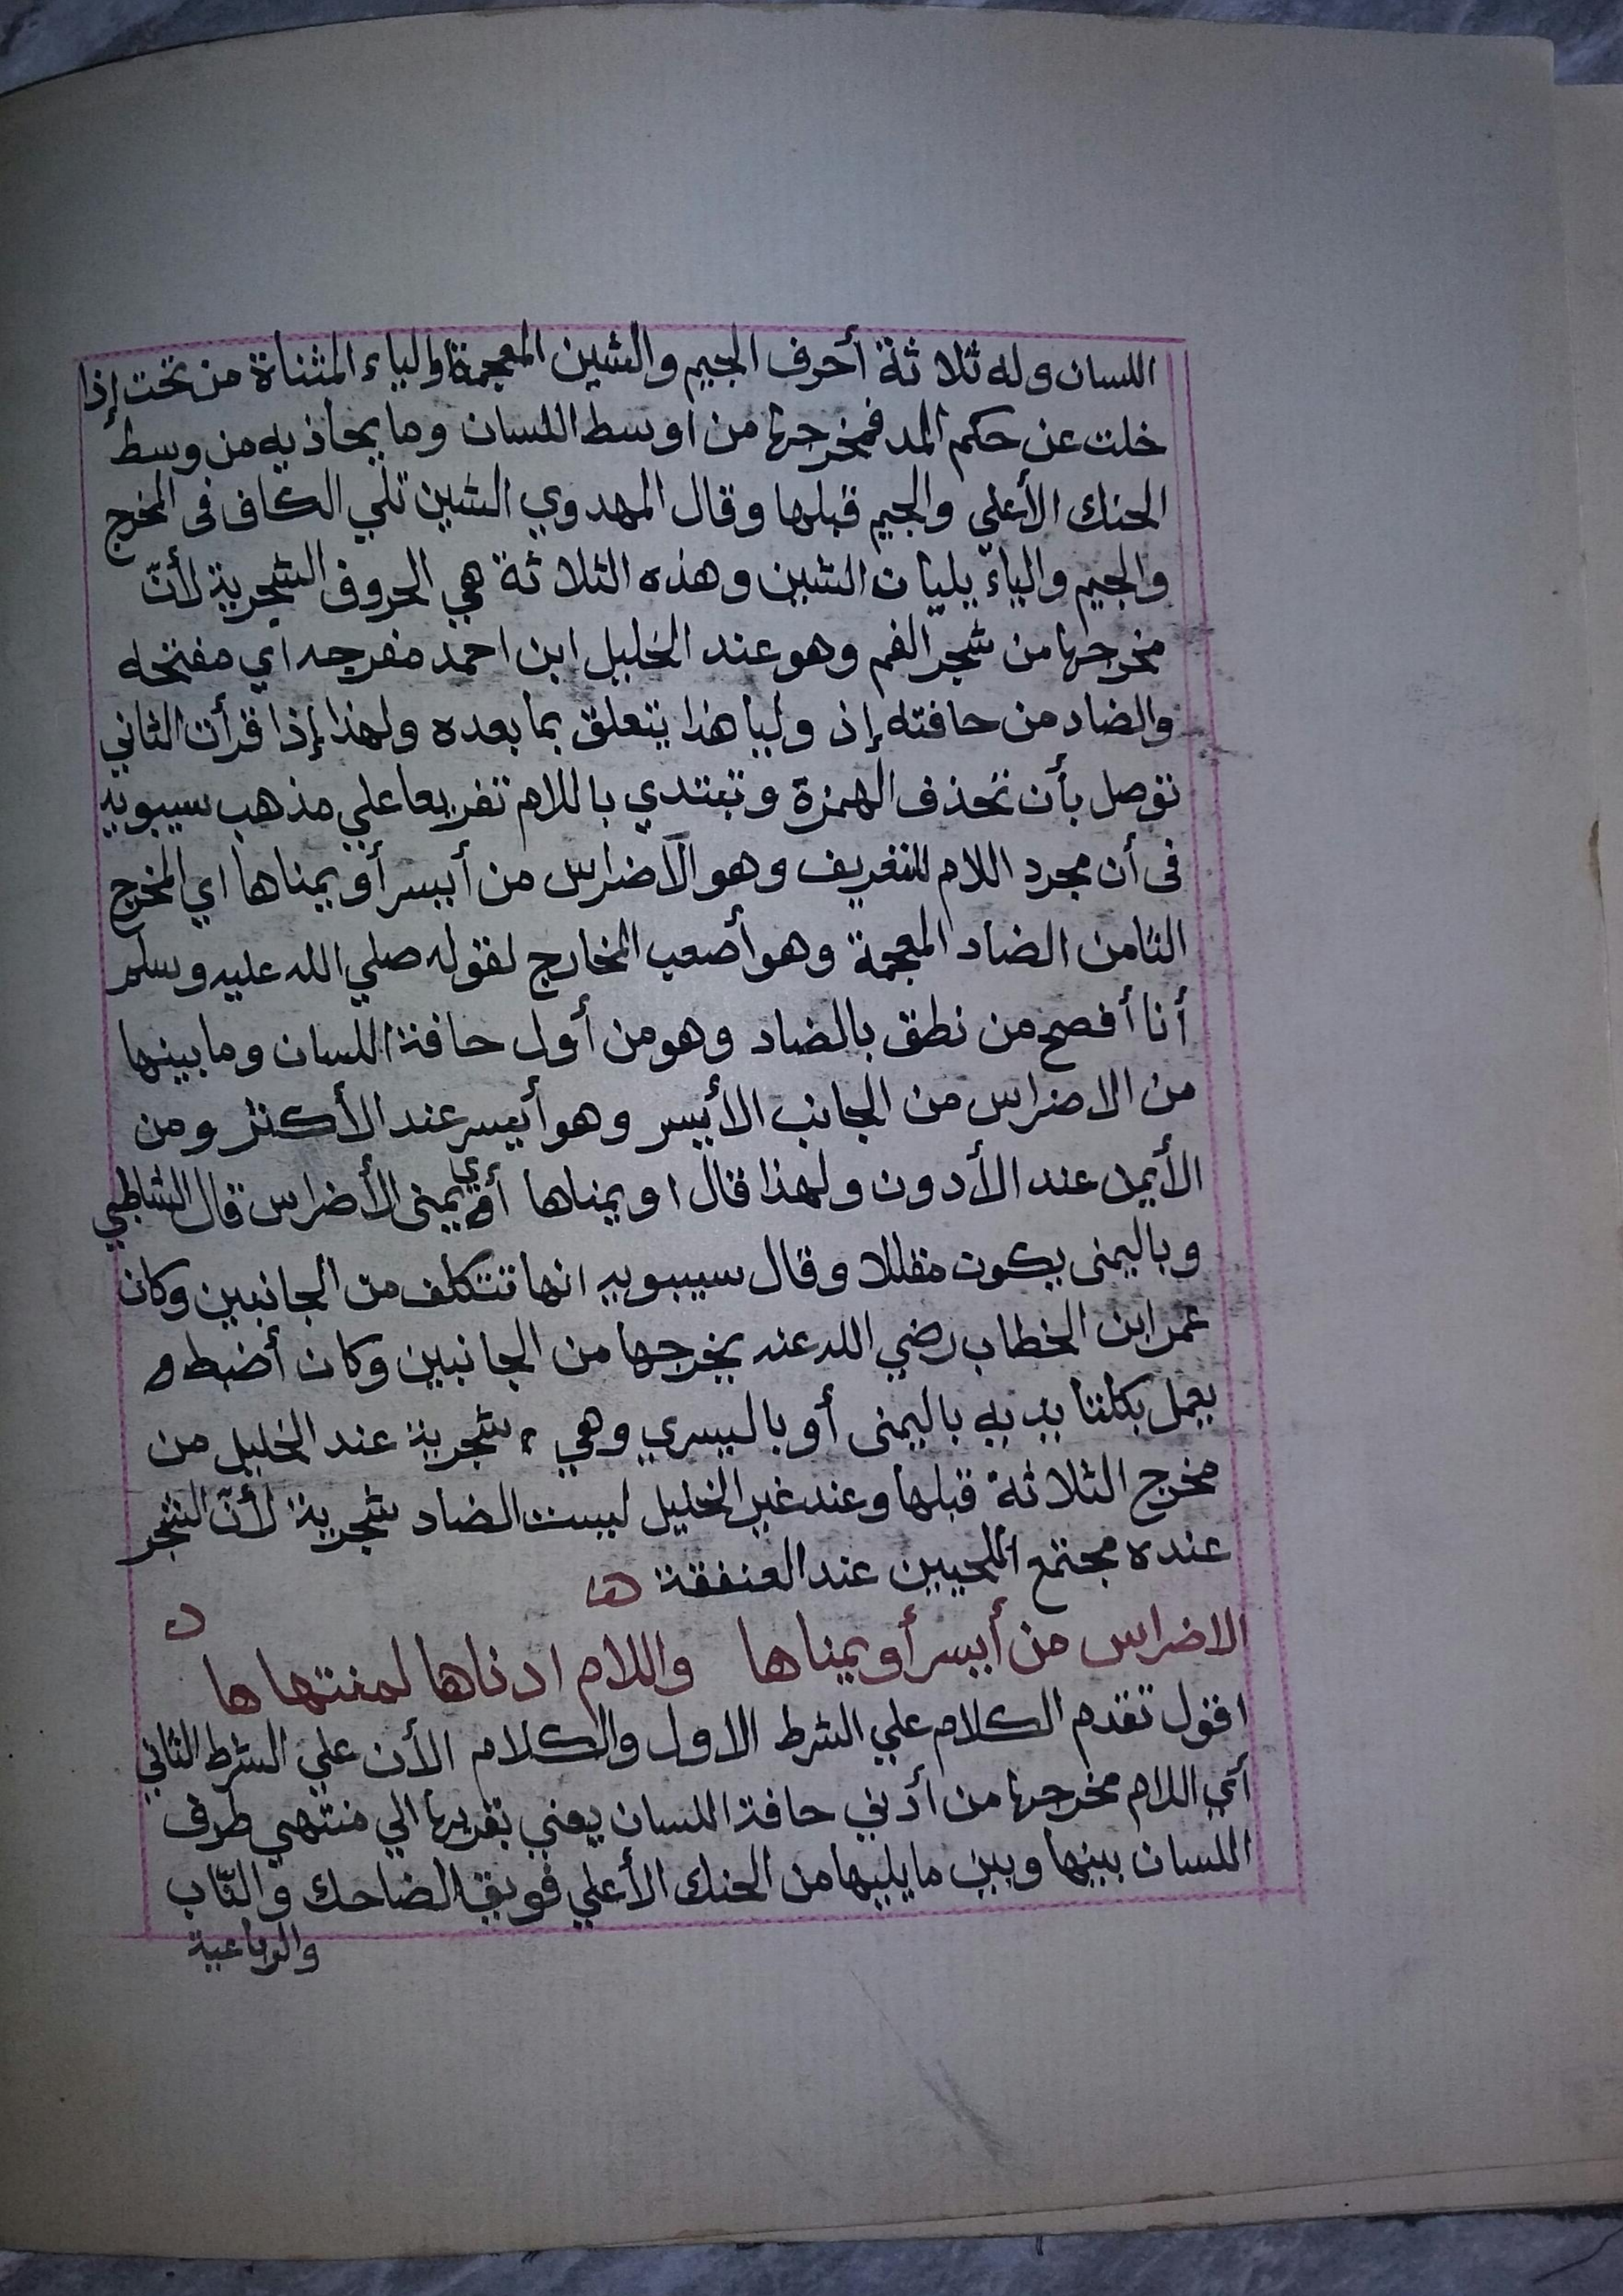 اللسان وله ثلاثة أحرف الجيم والشين المعجمة والياء المثناة من تحت إذا
خلت عن حكم المد فمخرجها من اوسط اللسان وما يحاذيه من وسط
الحنك الأعلي والجيم قبلها وقال المهدوي الشين تلي الكاف فى المخرج
والجيم والياء يليان الشين وهذه الثلاثة هي الحروف الشجرية لأنّ
مخرجها من شجر الفم وهو عند الخليل ابن احمد مفرجه اي مفتحه
والضاد من حافته إذ وليا هذا يتعلق بما بعده ولهذا إذا قرأت الثاني
توصل بأن تحذف الهمزة وتبتدي باللام تفريعا علي مذهب سيبويه
فى أن مجرد اللام للتعريف وهو الآضراس من أيسر أو يمناها اي المخرج
الثامن الضاد المعجمة وهو أصعب المخارج لقوله صلي الله عليه وسلم
أنا أفصح من نطق بالضاد وهو من أول حافة اللسان وما بينها
من الاضراس من الجانب الأيسر وهو أيسر عند الأكثر ومن
الأيمن عند الأدون ولهذا قال او يمناها أي يمنى الأضراس قال الشاطبي
وباليمنى يكون مقللا وقال سيبويه انها تتكلف من الجانبين وكان
عمر ابن الخطاب رضي الله عنه يخرجها من الجانبين وكان أضبط و
يعمل بكلتا يديه باليمنى أو باليسري وهي شجرية عند الخليل من
مخرج الثلاثة قبلها وعند غير الخليل ليست الضاد شجرية لأنّ الشجر
عنده مجتمع اللحيين عند العنفقة
الاضراس من أيسر أو يمناها واللام ادناها لمنتهاها
اقول تقدم الكلام علي الشرط الاول والكلام الأن علي الشرط الثاني
أي اللام مخرجها من أدني حافة اللسان يعني تقريبها الي منتهي طرف
اللسان بينها وبين ما يليها من الحنك الأعلي فويق الضاحك والنّاب
والرباعية